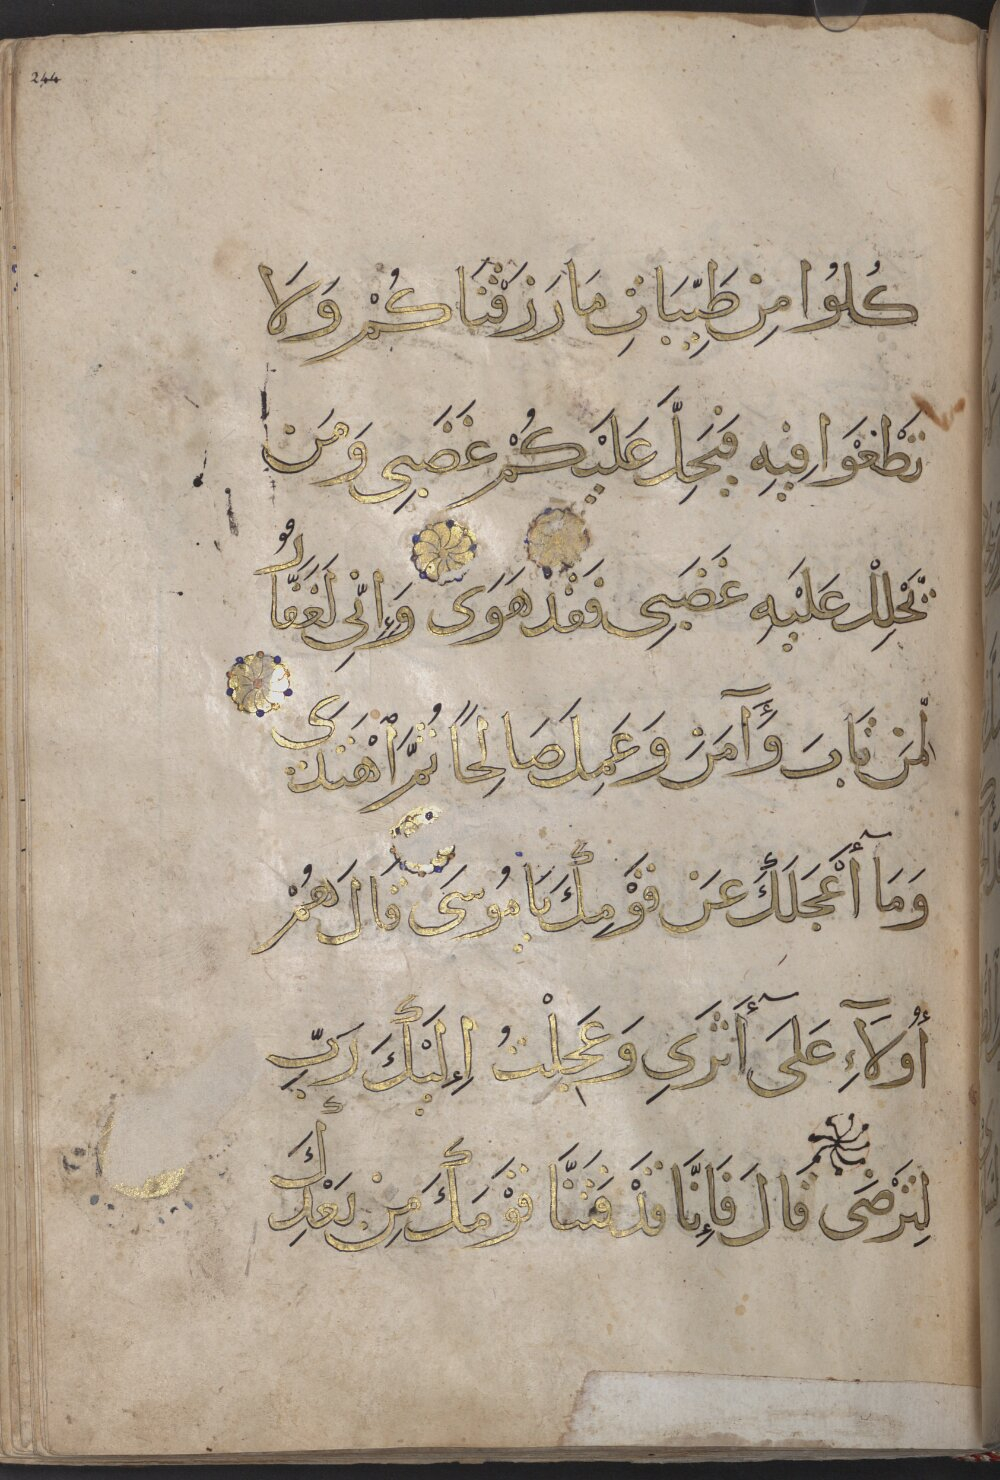 244
كُلُوا مِن طَيِّبَاتِ مَا رَزَقْنَاكُمْ وَلَا
تَطْغَوْا فِيهِ فَيَحِلَّ عَلَيْكُمْ غَضَبِي وَمَن
يَحْلِلْ عَلَيْهِ غَضَبِي فَقَدْ هَوَى وَإِنِّي لَغَفَّارٌ
لِّمَن تَابَ وَآمَنَ وَعَمِلَ صَالِحًا ثُمَّ اهْتَدَى
وَمَا أَعْجَلَكَ عَن قَوْمِكَ يَا مُوسَى قَالَ هُمْ
أُولَآءِ عَلَى أَثَرِي وَعَجِلْتُ إِلَيْكَ رَبِّ
لِتَرْضَى قَالَ فَإِنَّا قَدْ فَتَنَّا قَوْمَكَ مِن بَعْدِكَ